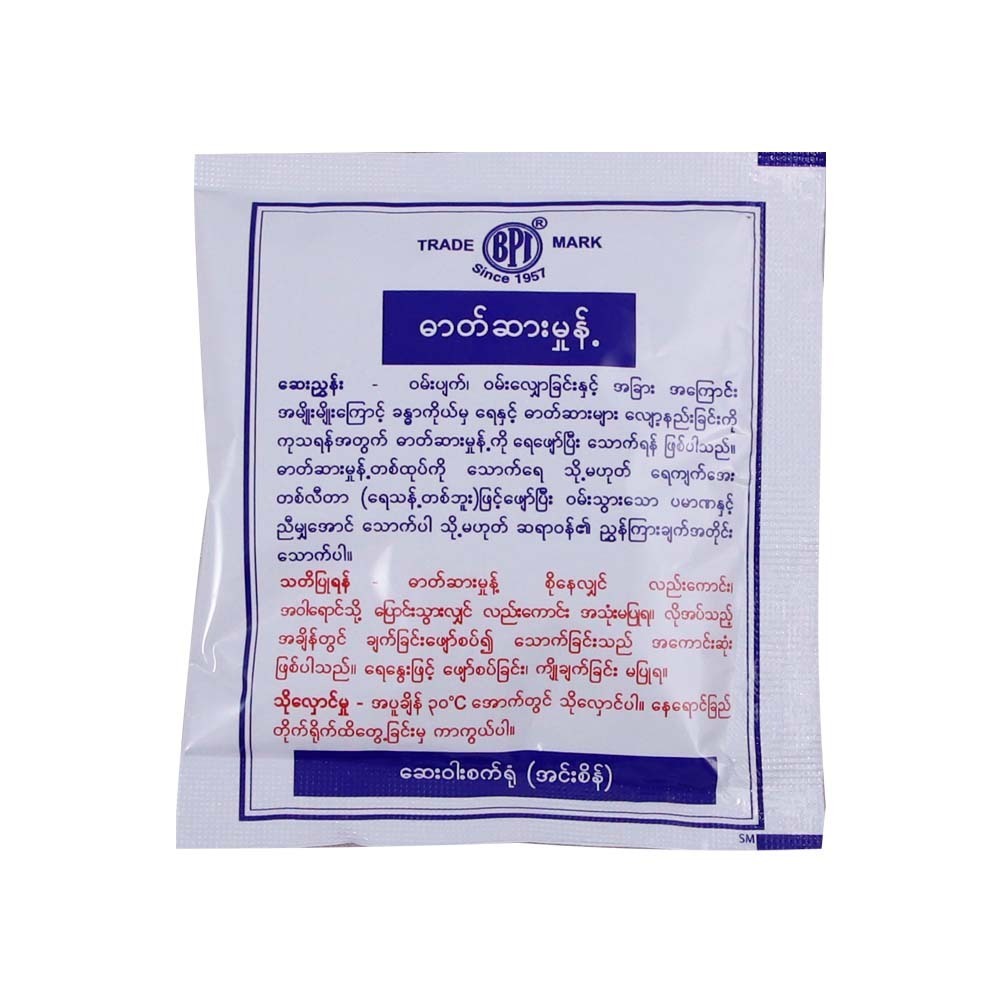 TRADE BPI® MARK
Since 1957
ဓာတ်ဆားမှုန့်
ဆေးညွှန်း - ဝမ်းပျက်၊ ဝမ်းလျှောခြင်းနှင့် အခြား အကြောင်း
အမျိုးမျိုးကြောင့် ခန္ဓာကိုယ်မှ ရေနှင့် ဓာတ်ဆားများ လျော့နည်းခြင်းကို
ကုသရန်အတွက် ဓာတ်ဆားမှုန့်ကို ရေဖျော်ပြီး သောက်ရန် ဖြစ်ပါသည်။
ဓာတ်ဆားမှုန့်တစ်ထုပ်ကို သောက်ရေ သို့မဟုတ် ရေကျက်အေး
တစ်လီတာ (ရေသန့်တစ်ဘူး)ဖြင့်ဖျော်ပြီး ဝမ်းသွားသော ပမာဏနှင့်
ညီမျှအောင် သောက်ပါ သို့မဟုတ် ဆရာဝန်၏ ညွှန်ကြားချက်အတိုင်း
သောက်ပါ။
သတိပြုရန် - ဓာတ်ဆားမှုန့် စိုနေလျှင် လည်းကောင်း၊
အဝါရောင်သို့ ပြောင်းသွားလျှင် လည်းကောင်း အသုံးမပြုရ။ လိုအပ်သည့်
အချိန်တွင် ချက်ခြင်းဖျော်စပ်၍ သောက်ခြင်းသည် အကောင်းဆုံး
ဖြစ်ပါသည်။ ရေနွေးဖြင့် ဖျော်စပ်ခြင်း၊ ကျိုချက်ခြင်း မပြုရ။
သိုလှောင်မှု - အပူချိန် ၃၀°C အောက်တွင် သိုလှောင်ပါ။ နေရောင်ခြည်
တိုက်ရိုက်ထိတွေ့ခြင်းမှ ကာကွယ်ပါ။
ဆေးဝါးစက်ရုံ (အင်းစိန်)
SM